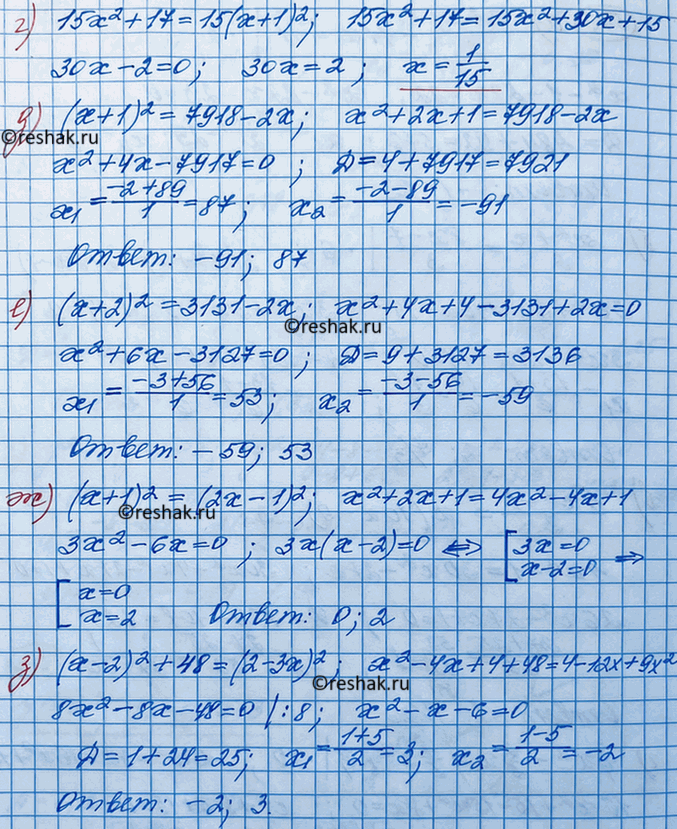 г) 15x²+17=15(x+1)²; 15x²+17=15x²+30x+15
30x-2=0; 30x=2; x=1/15
©reshak.ru
д) (x+1)²=7918-2x; x²+2x+1=7918-2x
x²+4x-7917=0; Д=4+7917=7921
x₁=(-2+89)/1=87; x₂=(-2-89)/1=-91
Ответ: -91; 87
е) (x+2)²=3131-2x; x²+4x+4-3131+2x=0
©reshak.ru
x²+6x-3127=0; Д=9+3127=3136
x₁=(-3+56)/1=53; x₂=(-3-56)/1=-59
Ответ: -59; 53
ж) (x+1)²=(2x-1)²; x²+2x+1=4x²-4x+1
©reshak.ru
3x²-6x=0; 3x(x-2)=0 ⇔ [3x=0 ⇒
x-2=0
[x=0
x=2 Ответ: 0; 2
з) (x-2)²+48=(2-3x)²; x²-4x+4+48=4-12x+9x²
©reshak.ru
8x²-8x-48=0 |:8; x²-x-6=0
Д=1+24=25; x₁=(1+5)/2=3; x₂=(1-5)/2=-2
Ответ: -2; 3.